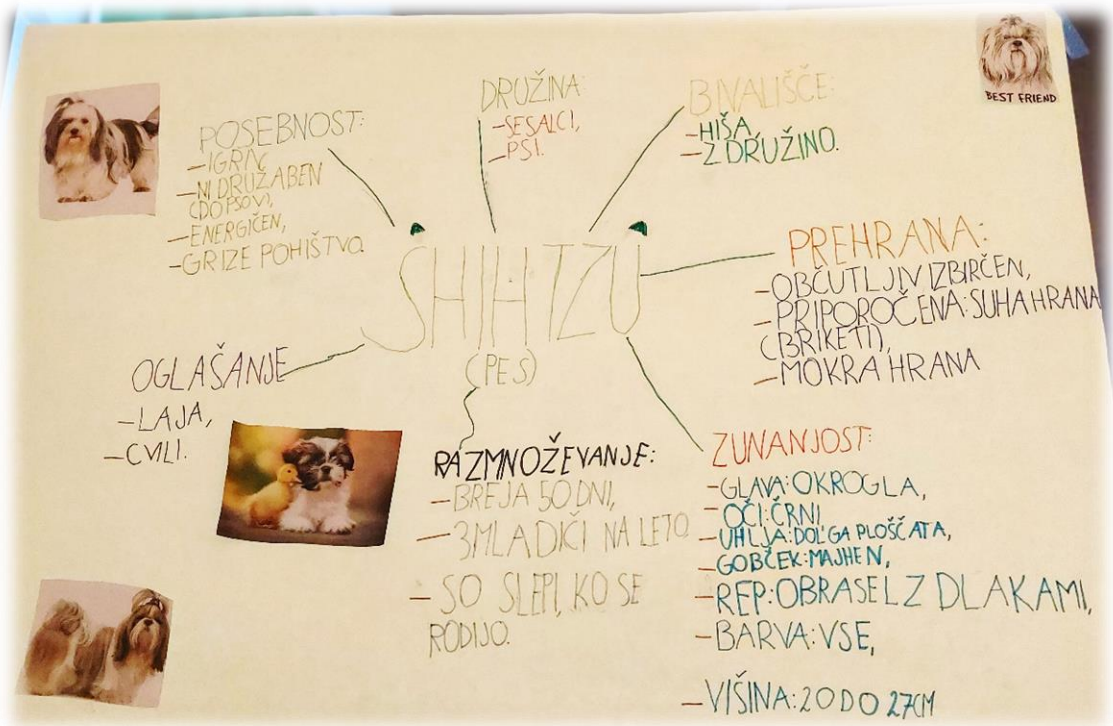 BEST FRIEND
POSEBNOST:
-IGRIV,
-NI DRUŽABEN
(DO PSOV),
-ENERGIČEN,
-GRIZE POHIŠTVO.
DRUŽINA:
-SESALCI,
-PSI.
BIVALIŠČE:
-HIŠA,
-Z DRUŽINO.
SHIH TZU
(PES)
PREHRANA:
-OBČUTLJIV IZBIRČEN,
-PRIPOROČENA: SUHA HRANA
(BRIKETI),
-MOKRA HRANA
OGLAŠANJE
-LAJA,
-CVILI.
RAZMNOŽEVANJE:
-BREJA 50 DNI,
-3 MLADIČI NA LETO
-SO SLEPI, KO SE
RODIJO.
ZUNANJOST:
-GLAVA: OKROGLA,
-OČI: ČRNI
-UHLJA: DOLGA PLOŠČATA,
-GOBČEK: MAJHEN,
-REP: OBRASEL Z DLAKAMI,
-BARVA: VSE,
-VIŠINA: 20 DO 27CM